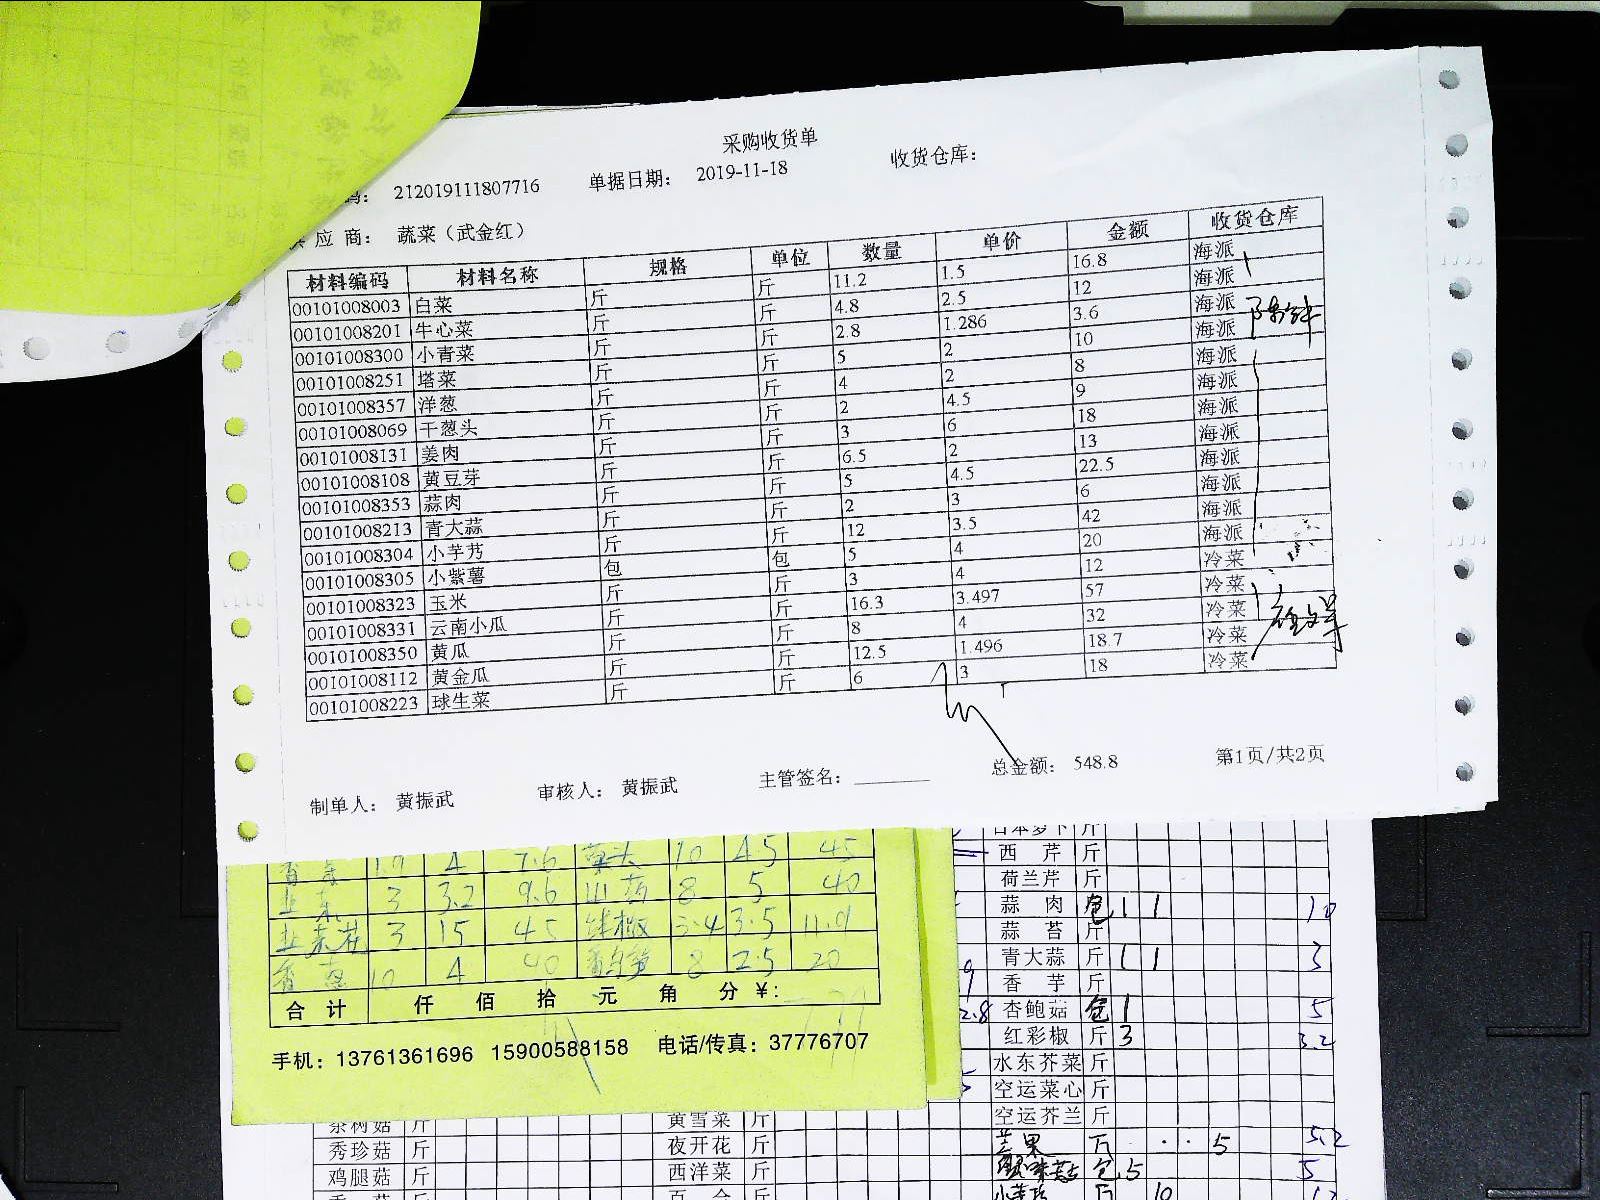 采购收货单
码： 212019111807716 单据日期： 2019-11-18 收货仓库：
应 商： 蔬菜（武金红）
材料编码 材料名称 规格 单位 数量 单价 金额 收货仓库
00101008003 白菜 斤 斤 11.2 1.5 16.8 海派
00101008201 牛心菜 斤 斤 4.8 2.5 12 海派
00101008300 小青菜 斤 斤 2.8 1.286 3.6 海派
00101008251 塔菜 斤 斤 5 2 10 海派
00101008357 洋葱 斤 斤 4 2 8 海派
00101008069 干葱头 斤 斤 2 4.5 9 海派
00101008131 姜肉 斤 斤 3 6 18 海派
00101008108 黄豆芽 斤 斤 6.5 2 13 海派
00101008353 蒜肉 斤 斤 5 4.5 22.5 海派
00101008213 青大蒜 斤 斤 2 3 6 海派
00101008304 小芋艿 斤 斤 12 3.5 42 海派
00101008305 小紫薯 包 包 5 4 20 海派
00101008323 玉米 斤 斤 3 4 12 冷菜
00101008331 云南小瓜 斤 斤 16.3 3.497 57 冷菜
00101008350 黄瓜 斤 斤 8 4 32 冷菜
00101008112 黄金瓜 斤 斤 12.5 1.496 18.7 冷菜
00101008223 球生菜 斤 斤 6 3 18 冷菜
制单人： 黄振武 审核人： 黄振武 主管签名： 总金额： 548.8 第1页/共2页
1.9 4 7.6 10 4.5 45
3 3.2 9.6 山药 8 5 40
韭菜花 3 15 45 3.4 3.5 11.9
香 10 4 40 8 2.5 20
合 计 仟 佰 拾 元 角 分 ￥：
手机：13761361696 15900588158 电话/传真：37776707
日本萝卜 斤
西 芹 斤
荷兰芹 斤
蒜 肉 包 1 1 10
蒜 苔 斤
青大蒜 斤 1 1 3
香 芋 斤
2.8 杏鲍菇 包 1 5
红彩椒 斤 3 3.2
水东芥菜 斤
空运菜心 斤
空运芥兰 斤
茶树菇 斤 黄雪菜 斤
秀珍菇 斤 夜开花 斤 5 5.2
鸡腿菇 斤 西洋菜 斤 包 5 5
百 合 斤 10